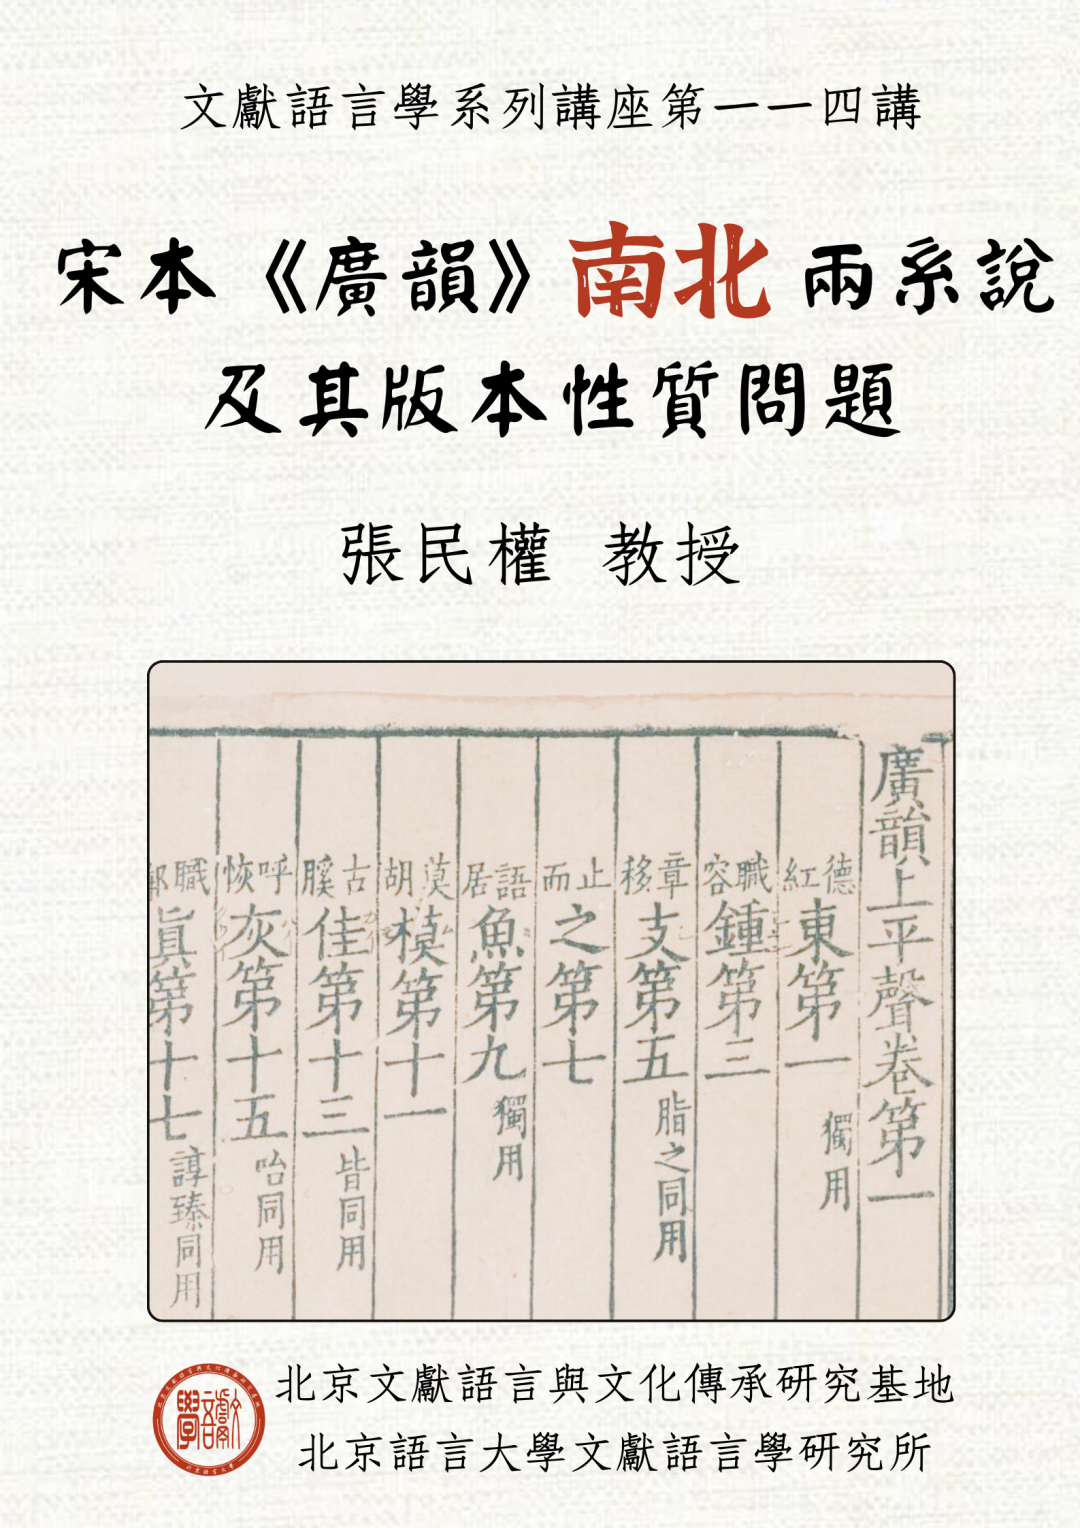 文獻語言學系列講座第一一四講
宋本《廣韻》南北兩系說
及其版本性質問題
張民權 教授
廣韻上平聲卷第一
德紅東第一獨用
職容鍾第三
章移支第五脂之同用
止而之第七
語居魚第九獨用
莫胡模第十一
古膎佳第十三皆同用
呼恢灰第十五咍同用
職鄰眞第十七諄臻同用
北京文獻語言與文化傳承研究基地
北京語言大學文獻語言學研究所